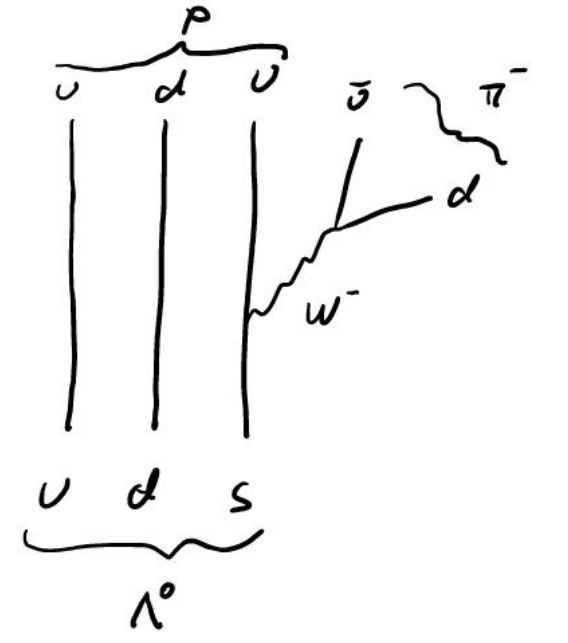 p
u d u
ū π⁻
d
W⁻
u d s
Λ⁰